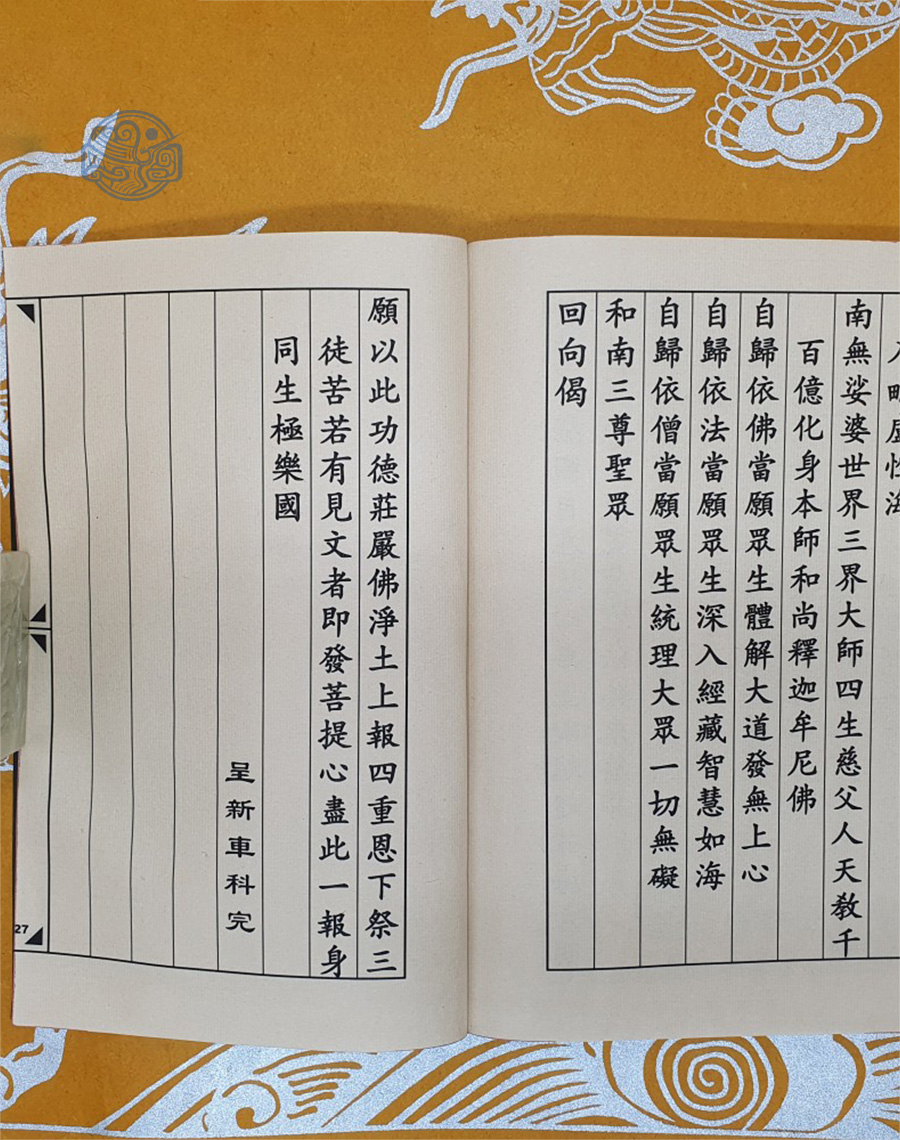 南無娑婆世界三界大師四生慈父人天教千
百億化身本師和尚釋迦牟尼佛
自歸依佛當願眾生體解大道發無上心
自歸依法當願眾生深入經藏智慧如海
自歸依僧當願眾生統理大眾一切無礙
和南三尊聖眾
回向偈
願以此功德莊嚴佛淨土上報四重恩下祭三
徒苦若有見文者即發菩提心盡此一報身
同生極樂國
呈新車科完
27